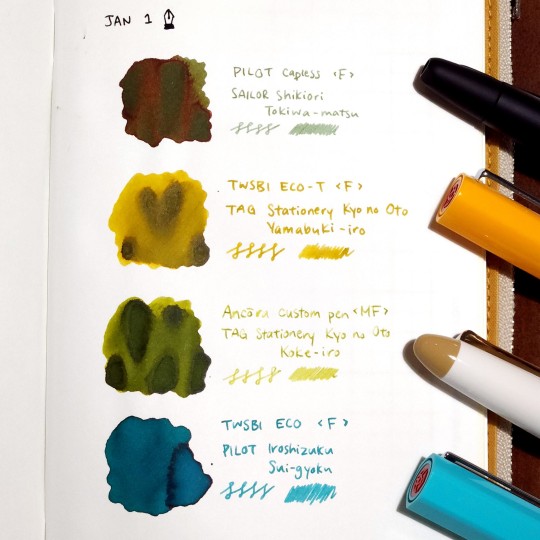 JAN 1
PILOT Capless <F>
SAILOR Shikiori
Tokiwa-matsu
TWSBI ECO-T <F>
TAG Stationery Kyo no Oto
Yamabuki-iro
Ancora custom pen <MF>
TAG Stationery Kyo no Oto
Koke-iro
TWSBI ECO <F>
PILOT Iroshizuku
Sui-gyoku